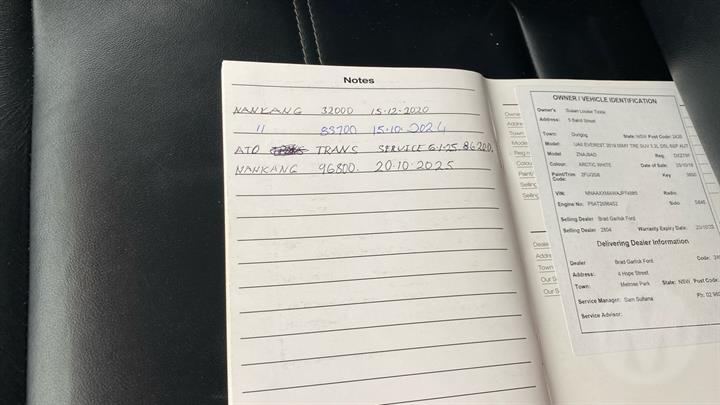 Notes
NANKANG 32000 15-12-2020
11 83700 15-10-2024
ATO TRANS SERVICE 6-1-25 86200.
NANKANG 96800. 20-10-2025
OWNER / VEHICLE IDENTIFICATION
Owner's: Susan Louise
Address: 5 Street
Town: Dungog State: NSW Post Code: 2420
Model: UAII EVEREST 2019.00MY TRE SUV 3.2L DSL 6SP AUT
Model: Reg.:
Colour: ARCTIC WHITE Date of Sale:
Paint/Trim Key
Code:
VIN: Radio:
Engine No.: Sido
Selling Dealer Brad Garlick Ford
Selling Dealer 2604 Warranty Expiry Date:
Delivering Dealer Information
Dealer Brad Garlick Ford Code:
Address: 4 Hope Street
Town: Melrose Park State: NSW Post Code:
Service Manager: Sam Sultana Ph: 02
Service Advisor:
Owne
Addre
Town
Mode
Reg n
Colou
Paint/
Selling
Selling
Deale
Addre
Town
Our S
Our S